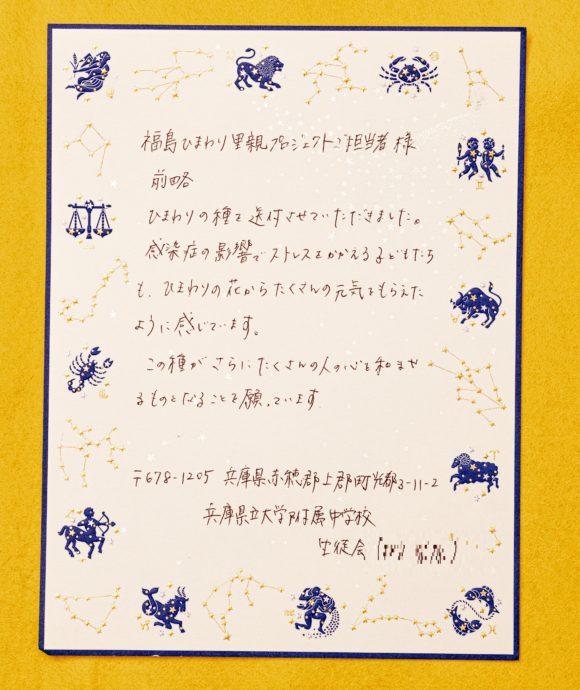 福島ひまわり里親プロジェクトご担当者 様
前略
ひまわりの種を送付させていただきました。
感染症の影響でストレスをかかえる子どもたち
も、ひまわりの花からたくさんの元気をもらえた
ように感じています。
この種がさらにたくさんの人の心を和ませ
るものとなることを願っています
〒678-1205 兵庫県赤穂郡上郡町光都3-11-2
兵庫県立大学附属中学校
生徒会